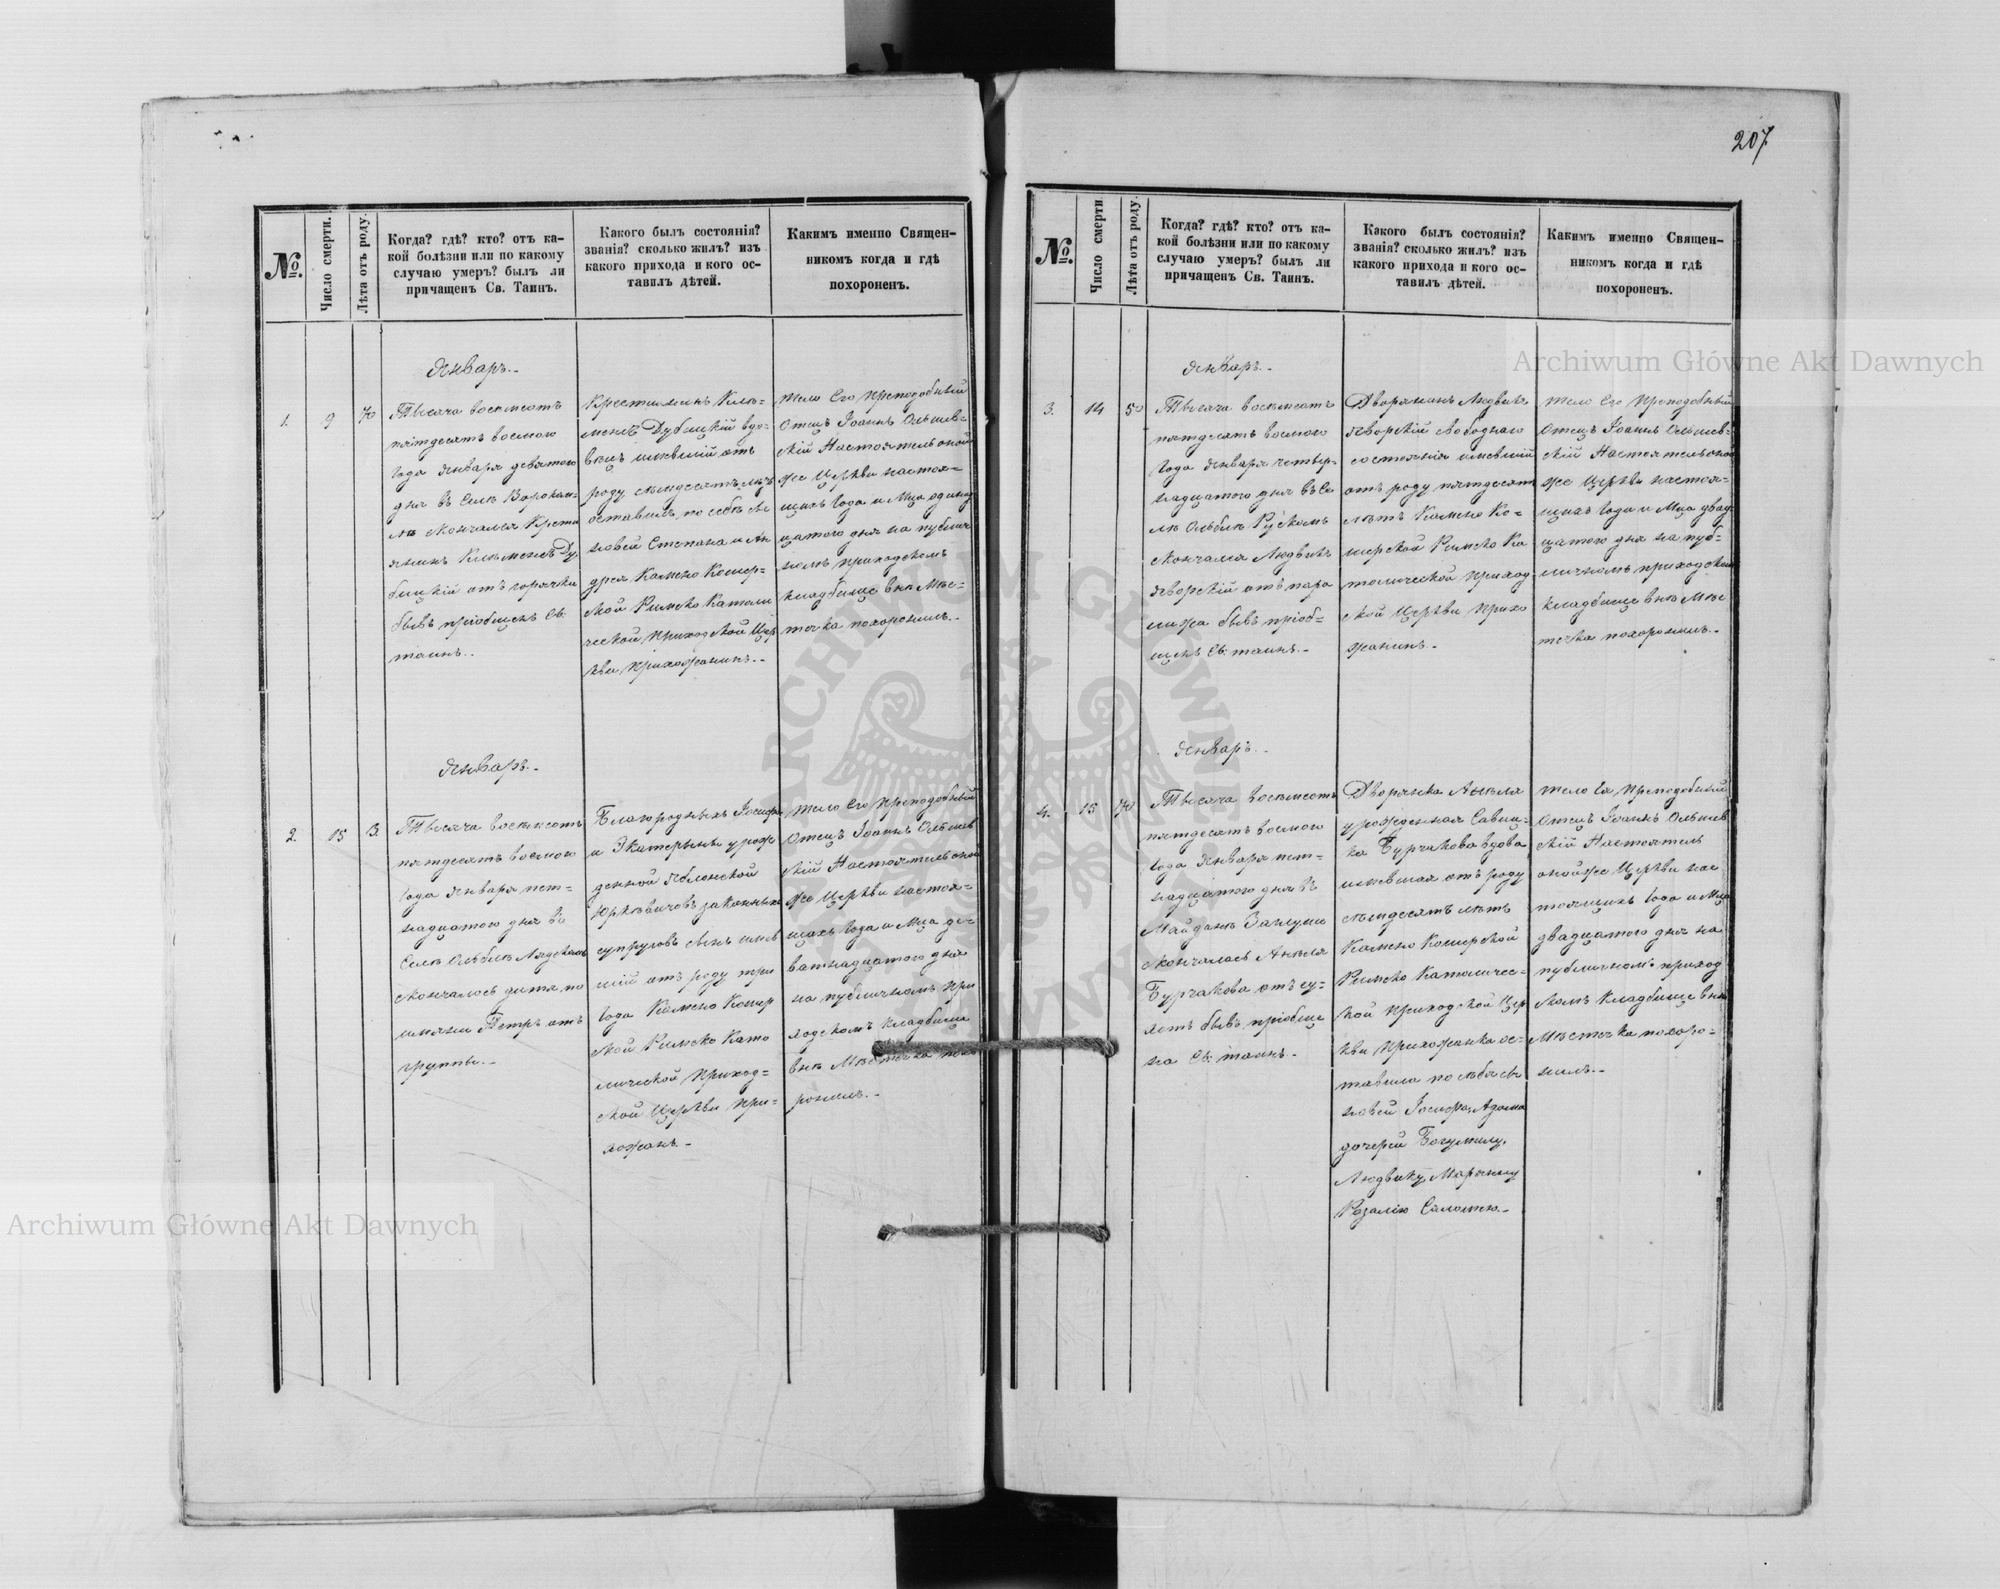 207
№.
Число смерти.
Лѣта отъ роду.
Когда? гдѣ? кто? отъ ка-
кой болѣзни или по какому
случаю умеръ? былъ ли
причащенъ Св. Таинъ.
Какого былъ состоянія?
званія? сколько жилъ? изъ
какого прихода и кого ос-
тавилъ дѣтей.
Какимъ именно Священ-
никомъ когда и гдѣ
похороненъ.
Январъ.-
1.
9
70
Тысяча восемсотъ
пятдесятъ восмого
Года Января девятого
дня въ Селѣ
скончался Крестья
янинъ Клѣменсъ Ду
бицкій отъ горячки
бывъ пріобщенъ Св:
таинъ.-
Крестянинъ Клѣ-
менсъ Дубицкій вдо-
вецъ имевшій отъ
роду семдесятъ лѣтъ
оставилъ по себѣ сы
новей Степана и Ан
дрея Камено Кошир-
ской Римско Католи
ческой Приходской Цер
кви Прихожанинъ.-
тело Его Преподобный
Отецъ Іоаннъ Ольшев-
скій Настоятель оной
же Церкви настоя-
щихъ Года и Мца одинад
цатого дня на публич
номъ приходскомъ
кладбище внѣ Мѣс-
течка похоронилъ.-
Январъ.-
2.
15
3
Тысяча восемсотъ
пятдесятъ восмого
Года Января пят-
надцатого дня въ
Селѣ Ольблѣ Лядскомъ
скончалось дитя по
имяни Петръ отъ
круппы.-
Благородныхъ Іосифа
и Экатерины урож
денной Яблонской
Юркевичовъ законныхъ
супруговъ сынъ имев
шій отъ роду три
Года Камено Кошир
ской Римско Като
лической Приход-
ской Церкви При-
хожанъ.-
тело Его Преподобный
Отецъ Іоаннъ Ольшев
скій Настоятель оной
же Церкви настоя-
щихъ Года и Мца де-
ватнадцатого дня
на публичномъ При
ходскомъ кладбище
внѣ Мѣстечка похо
ронилъ.-
№.
Число смерти.
Лѣта отъ роду.
Когда? гдѣ? кто? отъ ка-
кой болѣзни или по какому
случаю умеръ? былъ ли
причащенъ Св. Таинъ.
Какого былъ состоянія?
званія? сколько жилъ? изъ
какого прихода и кого ос-
тавилъ дѣтей.
Какимъ именно Священ-
никомъ когда и гдѣ
похороненъ.
Январъ.-
3.
14
50
Тысяча восемсотъ
пятдесятъ восмого
Года Января четыр-
надцатого дня въ Се
лѣ Ольблѣ Рускомъ
скончался Людвикъ
Яворскій отъ пара
лижа бывъ пріоб-
щенъ Св: таинъ.-
Дворянинъ Людвикъ
Яворскій свободнаго
состоянія имевшій
отъ роду пятдесятъ
лѣтъ Камено Ко-
ширской Римско Ка
толической Приход
ской Церкви Прихо
жанинъ.-
тело Его Преподобный
Отецъ Іоаннъ Ольшев-
скій Настоятель оной
же Церкви настоя-
щихъ Года и Мца двад
цатого дня на пуб-
личномъ приходскомъ
кладбище внѣ Мѣс
течка похоронилъ.-
Январъ.-
4.
15
70
Тысяча восемсотъ
пятдесятъ восмого
Года Января пят-
надцатого дня въ
Майданѣ
скончалась Анѣля
Бурчакова отъ су-
хотъ бывъ пріобще
на Св: таинъ.-
Дворянка Анѣля
урожденная Савиц-
ка Бурчакова вдова
имевшая отъ роду
семдесятъ лѣтъ
Камено Коширской
Римско Католичес-
кой Приходской Цер
кви Прихожанка ос-
тавила по себѣ сы
новей Іосифа, Адама
дочерей Богумилу,
Людвику, Марянну
Розалію Саломею.-
тело Ея Преподобный
Отецъ Іоаннъ Ольшев
скій Настоятель
оной же Церкви нас
тоящихъ Года и Мца
двадцатого дня на
публичномъ приход
скомъ кладбище внѣ
Мѣстечка похоро-
нилъ.-
Archiwum Główne Akt Dawnych
Archiwum Główne Akt Dawnych